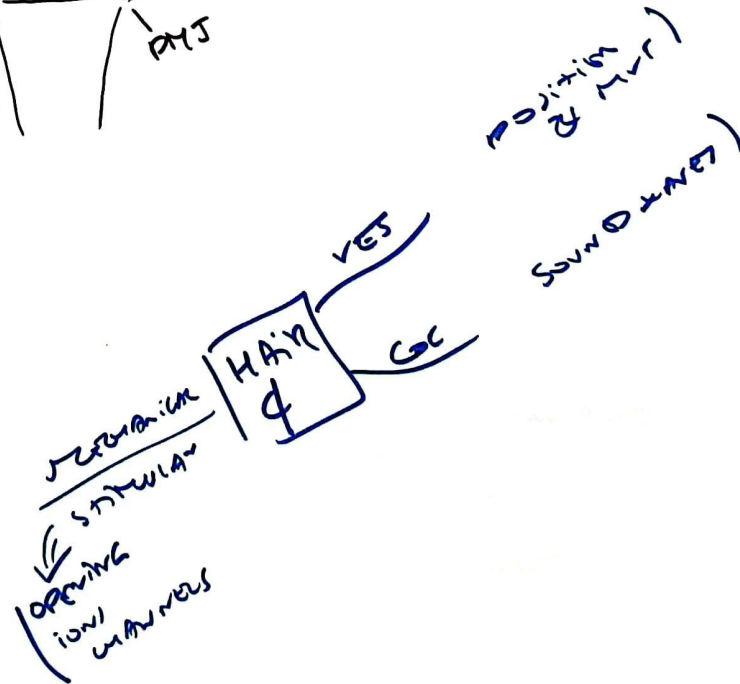 PMJ
position
& Mvt)
SOUND WAVES)
VES
HAIR
¢
COC
MECHANICAL
STIMULAN
OPENING
ION)
CHANNELS